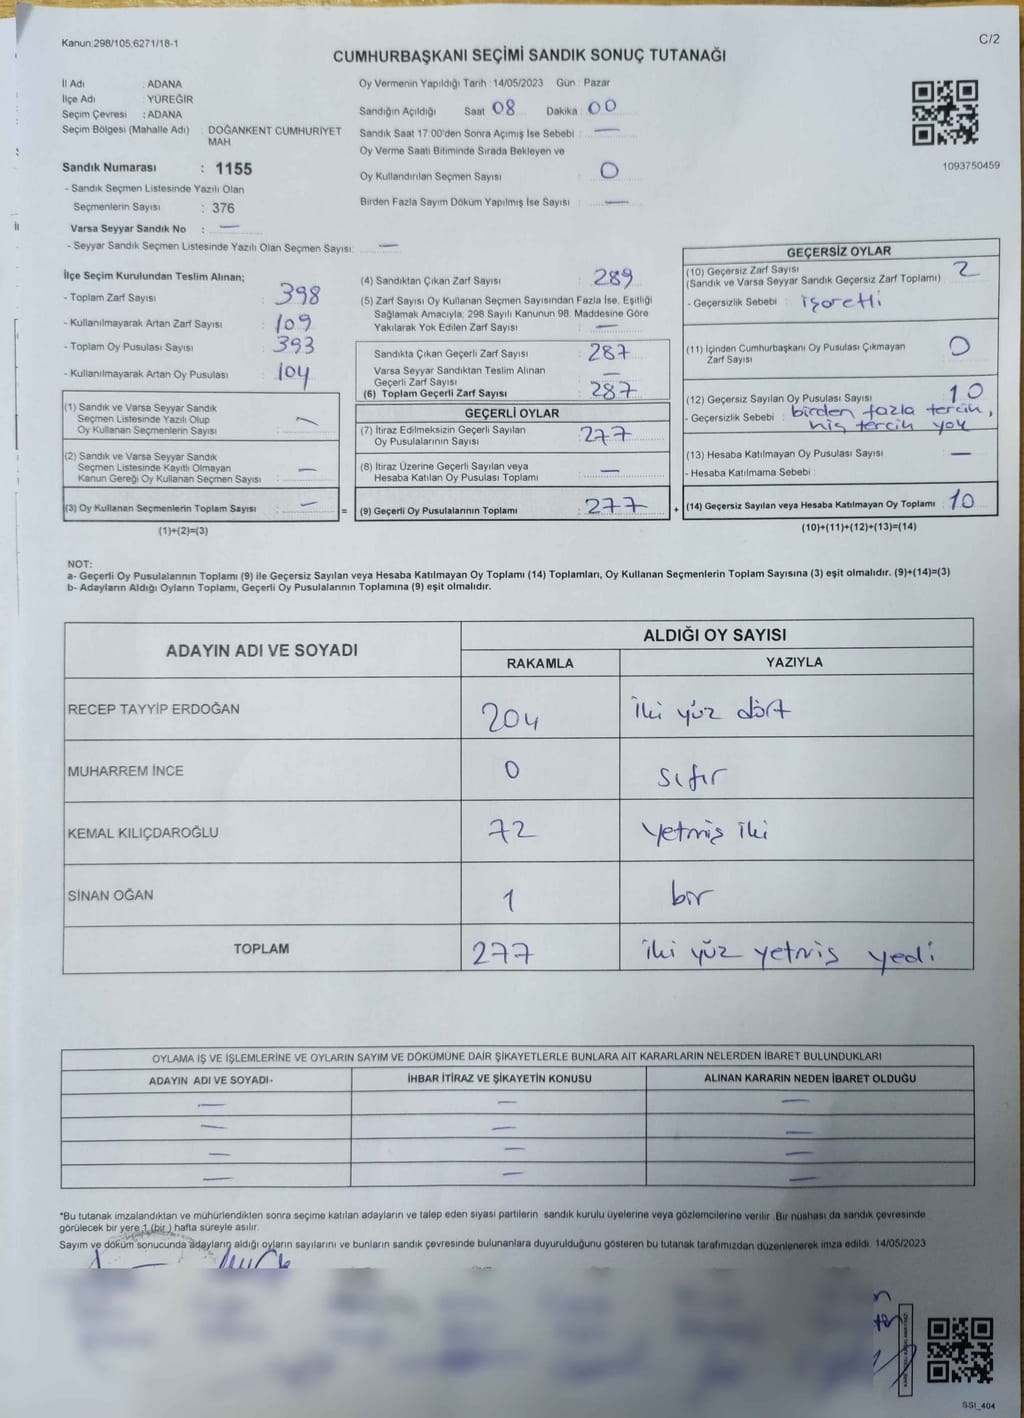 Kanun:298/105;6271/18-1
C/2
CUMHURBAŞKANI SEÇİMİ SANDIK SONUÇ TUTANAĞI
İl Adı : ADANA
İlçe Adı : YÜREĞİR
Seçim Çevresi : ADANA
Seçim Bölgesi (Mahalle Adı) : DOĞANKENT CUMHURİYET
MAH
Sandık Numarası : 1155
- Sandık Seçmen Listesinde Yazılı Olan
Seçmenlerin Sayısı : 376
Varsa Seyyar Sandık No : —
- Seyyar Sandık Seçmen Listesinde Yazılı Olan Seçmen Sayısı: —
Oy Vermenin Yapıldığı Tarih : 14/05/2023 Gün : Pazar
Sandığın Açıldığı Saat 08 Dakika : 00
Sandık Saat 17:00'den Sonra Açımış İse Sebebi : —
Oy Verme Saati Bitiminde Sırada Bekleyen ve
Oy Kullandırılan Seçmen Sayısı : 0
Birden Fazla Sayım Döküm Yapılmış İse Sayısı : —
1093750459
İlçe Seçim Kurulundan Teslim Alınan;
- Toplam Zarf Sayısı : 398
- Kullanılmayarak Artan Zarf Sayısı : 109
- Toplam Oy Pusulası Sayısı : 393
- Kullanılmayarak Artan Oy Pusulası : 104
(1) Sandık ve Varsa Seyyar Sandık
Seçmen Listesinde Yazılı Olup
Oy Kullanan Seçmenlerin Sayısı : —
(2) Sandık ve Varsa Seyyar Sandık
Seçmen Listesinde Kayıtlı Olmayan
Kanun Gereği Oy Kullanan Seçmen Sayısı : —
(3) Oy Kullanan Seçmenlerin Toplam Sayısı : —
(1)+(2)=(3)
(4) Sandıktan Çıkan Zarf Sayısı : 289
(5) Zarf Sayısı Oy Kullanan Seçmen Sayısından Fazla İse, Eşitliği
Sağlamak Amacıyla; 298 Sayılı Kanunun 98. Maddesine Göre
Yakılarak Yok Edilen Zarf Sayısı : —
Sandıkta Çıkan Geçerli Zarf Sayısı : 287
Varsa Seyyar Sandıktan Teslim Alınan
Geçerli Zarf Sayısı : —
(6) Toplam Geçerli Zarf Sayısı : 287
GEÇERLİ OYLAR
(7) İtiraz Edilmeksizin Geçerli Sayılan
Oy Pusulalarının Sayısı : 277
(8) İtiraz Üzerine Geçerli Sayılan veya
Hesaba Katılan Oy Pusulası Toplamı : —
= (9) Geçerli Oy Pusulalarının Toplamı : 277
GEÇERSİZ OYLAR
(10) Geçersiz Zarf Sayısı : 2
(Sandık ve Varsa Seyyar Sandık Geçersiz Zarf Toplamı)
- Geçersizlik Sebebi : işaretli
(11) İçinden Cumhurbaşkanı Oy Pusulası Çıkmayan
Zarf Sayısı : 0
(12) Geçersiz Sayılan Oy Pusulası Sayısı : 10
- Geçersizlik Sebebi : birden fazla tercih,
hiç tercih yok
(13) Hesaba Katılmayan Oy Pusulası Sayısı : —
- Hesaba Katılmama Sebebi :
+ (14) Geçersiz Sayılan veya Hesaba Katılmayan Oy Toplamı : 10
(10)+(11)+(12)+(13)=(14)
NOT:
a- Geçerli Oy Pusulalarının Toplamı (9) ile Geçersiz Sayılan veya Hesaba Katılmayan Oy Toplamı (14) Toplamları, Oy Kullanan Seçmenlerin Toplam Sayısına (3) eşit olmalıdır. (9)+(14)=(3)
b- Adayların Aldığı Oyların Toplamı, Geçerli Oy Pusulalarının Toplamına (9) eşit olmalıdır.
ADAYIN ADI VE SOYADI
ALDIĞI OY SAYISI
RAKAMLA YAZIYLA
RECEP TAYYİP ERDOĞAN 204 İki yüz dört
MUHARREM İNCE 0 sıfır
KEMAL KILIÇDAROĞLU 72 yetmiş iki
SİNAN OĞAN 1 bir
TOPLAM 277 iki yüz yetmiş yedi
OYLAMA İŞ VE İŞLEMLERİNE VE OYLARIN SAYIM VE DÖKÜMÜNE DAİR ŞİKAYETLERLE BUNLARA AİT KARARLARIN NELERDEN İBARET BULUNDUKLARI
ADAYIN ADI VE SOYADI İHBAR İTİRAZ VE ŞİKAYETİN KONUSU ALINAN KARARIN NEDEN İBARET OLDUĞU
— — —
— — —
— — —
— — —
*Bu tutanak imzalandıktan ve mühürlendikten sonra seçime katılan adayların ve talep eden siyasi partilerin sandık kurulu üyelerine veya gözlemcilerine verilir. Bir nüshası da sandık çevresinde
görülecek bir yere 1 (bir) hafta süreyle asılır.
Sayım ve döküm sonucunda adayların aldığı oyların sayılarını ve bunların sandık çevresinde bulunanlara duyurulduğunu gösteren bu tutanak tarafımızdan düzenlenerek imza edildi. 14/05/2023
SSI_404